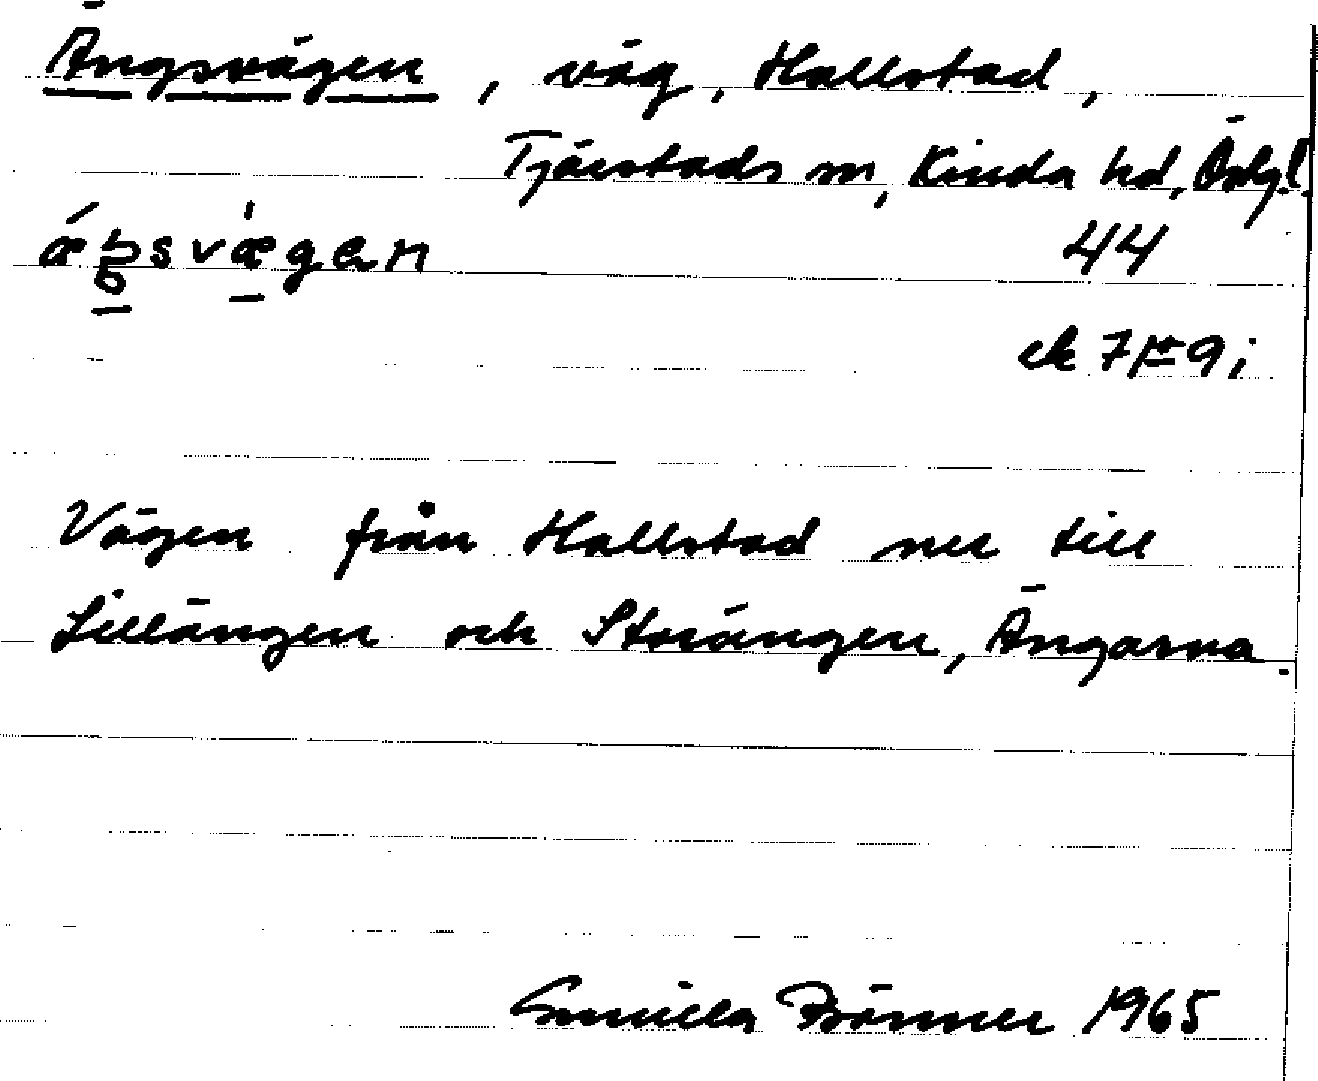 Ängsvägen, väg, Hallstad,
Tjärstads sn, Kinda hd, Östgl.
44
ek 7F9i
Vägen från Hallstad ner till
Lillängen och Storängen, Ängarna.
Gunilla 1965